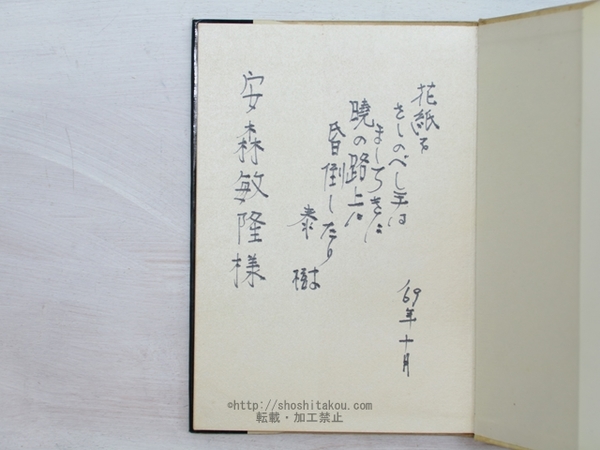 花紙を
さしのべし手は
ましろきに
暁の路上に
昏倒したり
泰樹
安森敏隆様
'69年十月
©http://shoshitakou.com/
転載・加工禁止